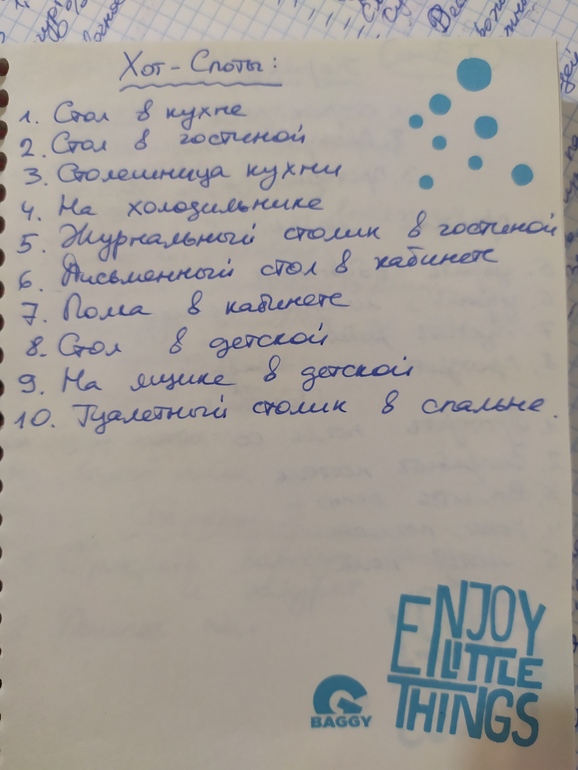 Хот-Споты:
1. Стол в кухне
2. Стол в гостиной
3. Столешница кухни
4. На холодильнике
5. Журнальный столик в гостиной
6. Письменный стол в кабинете
7. Пома в кабинете
8. Стол в детской
9. На ящике в детской
10. Туалетный столик в спальне.
ENJOY
LITTLE
THINGS
BAGGY